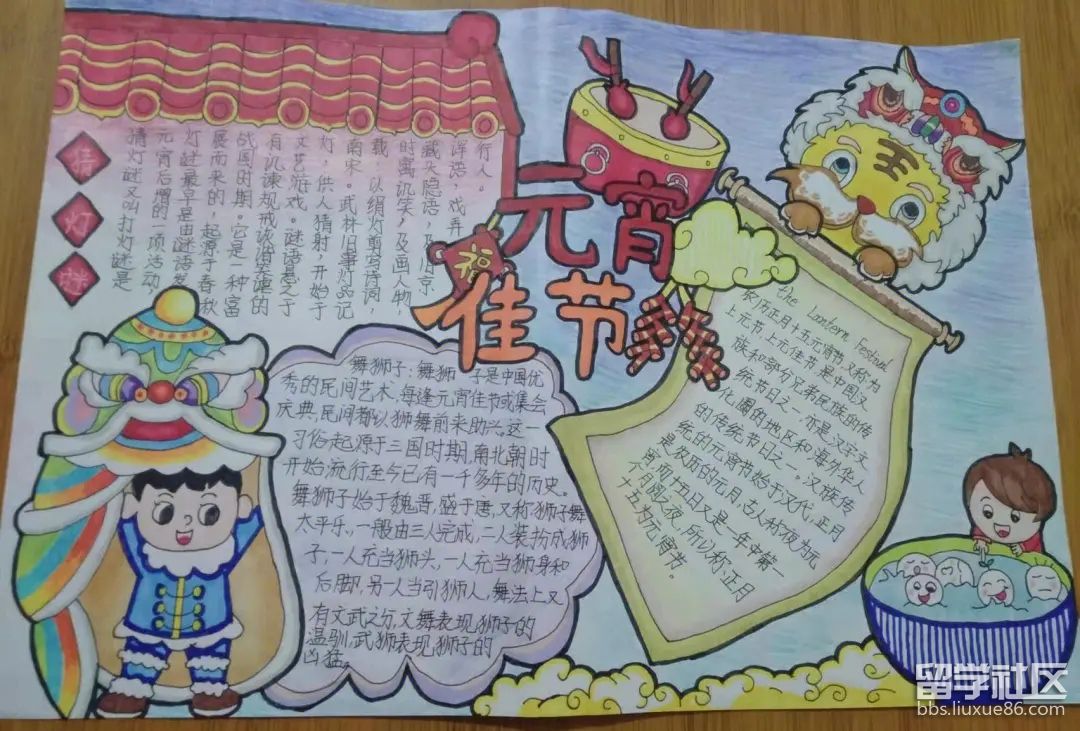 元宵
佳节
福
猜灯谜
猜灯谜又叫打灯谜是
元宵后增的一项活动
灯谜最早是由谜语发
展而来的,起源于春秋
战国时期。它是一种富
有讥谏规戒诙谐笑谑的
文艺游戏。谜语悬之于
灯,供人猜射,开始于
南宋。武林旧事灯品记
载,以绢灯剪写诗词,
时寓讥笑,及画人物,
藏头隐语,及旧京
诨语,戏弄
行人。
舞狮子:舞狮子是中国优
秀的民间艺术,每逢元宵佳节或集会
庆典,民间都以狮舞前来助兴。这一
习俗起源于三国时期,南北朝时
开始流行至今已有一千多年的历史。
舞狮子始于魏晋,盛于唐,又称狮子舞
太平乐,一般由三人完成,二人装扮成狮
子,一人充当狮头,一人充当狮身和
后脚,另一人当引狮人,舞法上又
有文武之分,文舞表现狮子的
温驯,武狮表现狮子的
凶猛。
王
the Lantern Festival
农历正月十五元宵节又称为
上元节,上元佳节是中国汉
族和部分兄弟民族的传
统节日之一,亦是汉字文
化圈的地区和海外华人
的传统节日之一。汉族传
统的元宵节始于汉代,正月
是农历的元月,古人称夜为元
宵,而十五日又是一年中第一
个月圆之夜,所以称正月
十五为元宵节。
留学社区
bbs.liuxue86.com